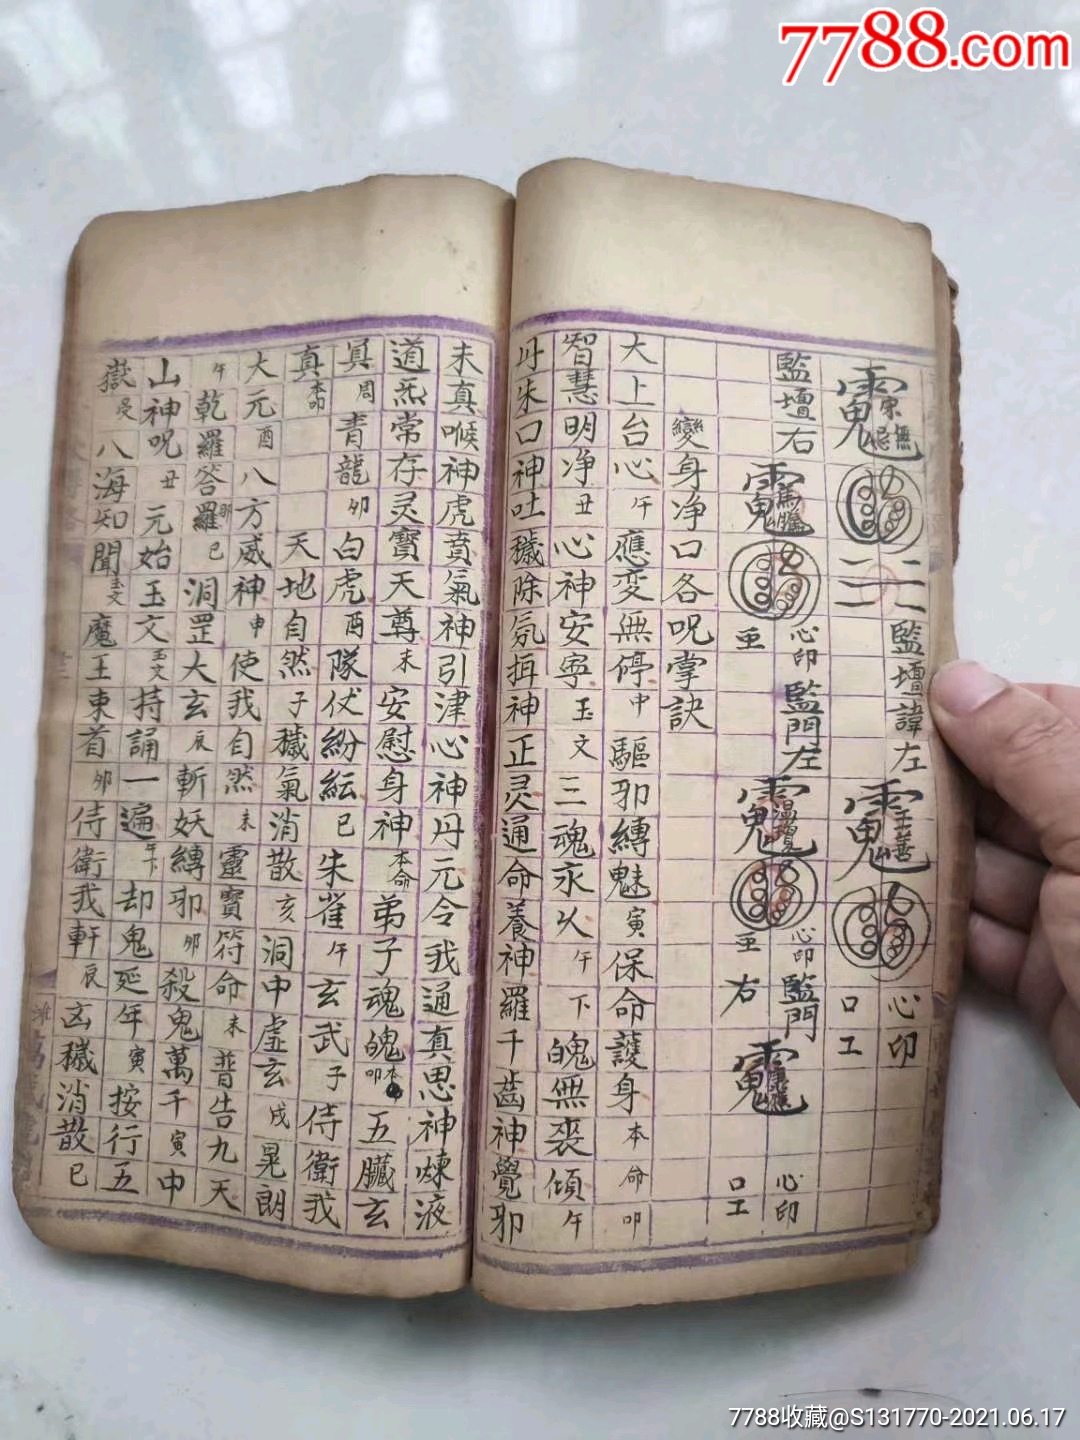 7788.com
二二 監壇諱左
心印
口工
監壇右
心印 監門左
心印 監門
右
心印
口工
變身净口各呪掌訣
大上台心午應变無停中驅邪縛魅寅保命護身本命卯
智慧明净丑心神安寕玉文三魂永久午下魄無丧傾午
丹朱口神吐穢除氛揖神正灵通命養神羅千齒神覺邪
未真喉神虎賁氣神引津心神丹元令我通真思神煉液
道炁常存灵寳天尊未安慰身神本命弟子魂魄五臓玄
真周青龍卯白虎酉隊仗紛紜巳朱雀午玄武子侍衛我
真本命
天地自然子穢氣消散亥洞中虚玄戌晃朗
大元酉八方威神申使我自然未靈寳符命未普告九天
午乾羅答羅明巳洞罡大玄辰斬妖縛邪卯殺鬼萬千寅中
山神呪丑元始玉文玉文持誦一遍午下却鬼延年寅按行五
嶽八海知聞玉文魔王東首卯侍衛我軒辰凶穢消散巳
7788收藏@S131770-2021.06.17